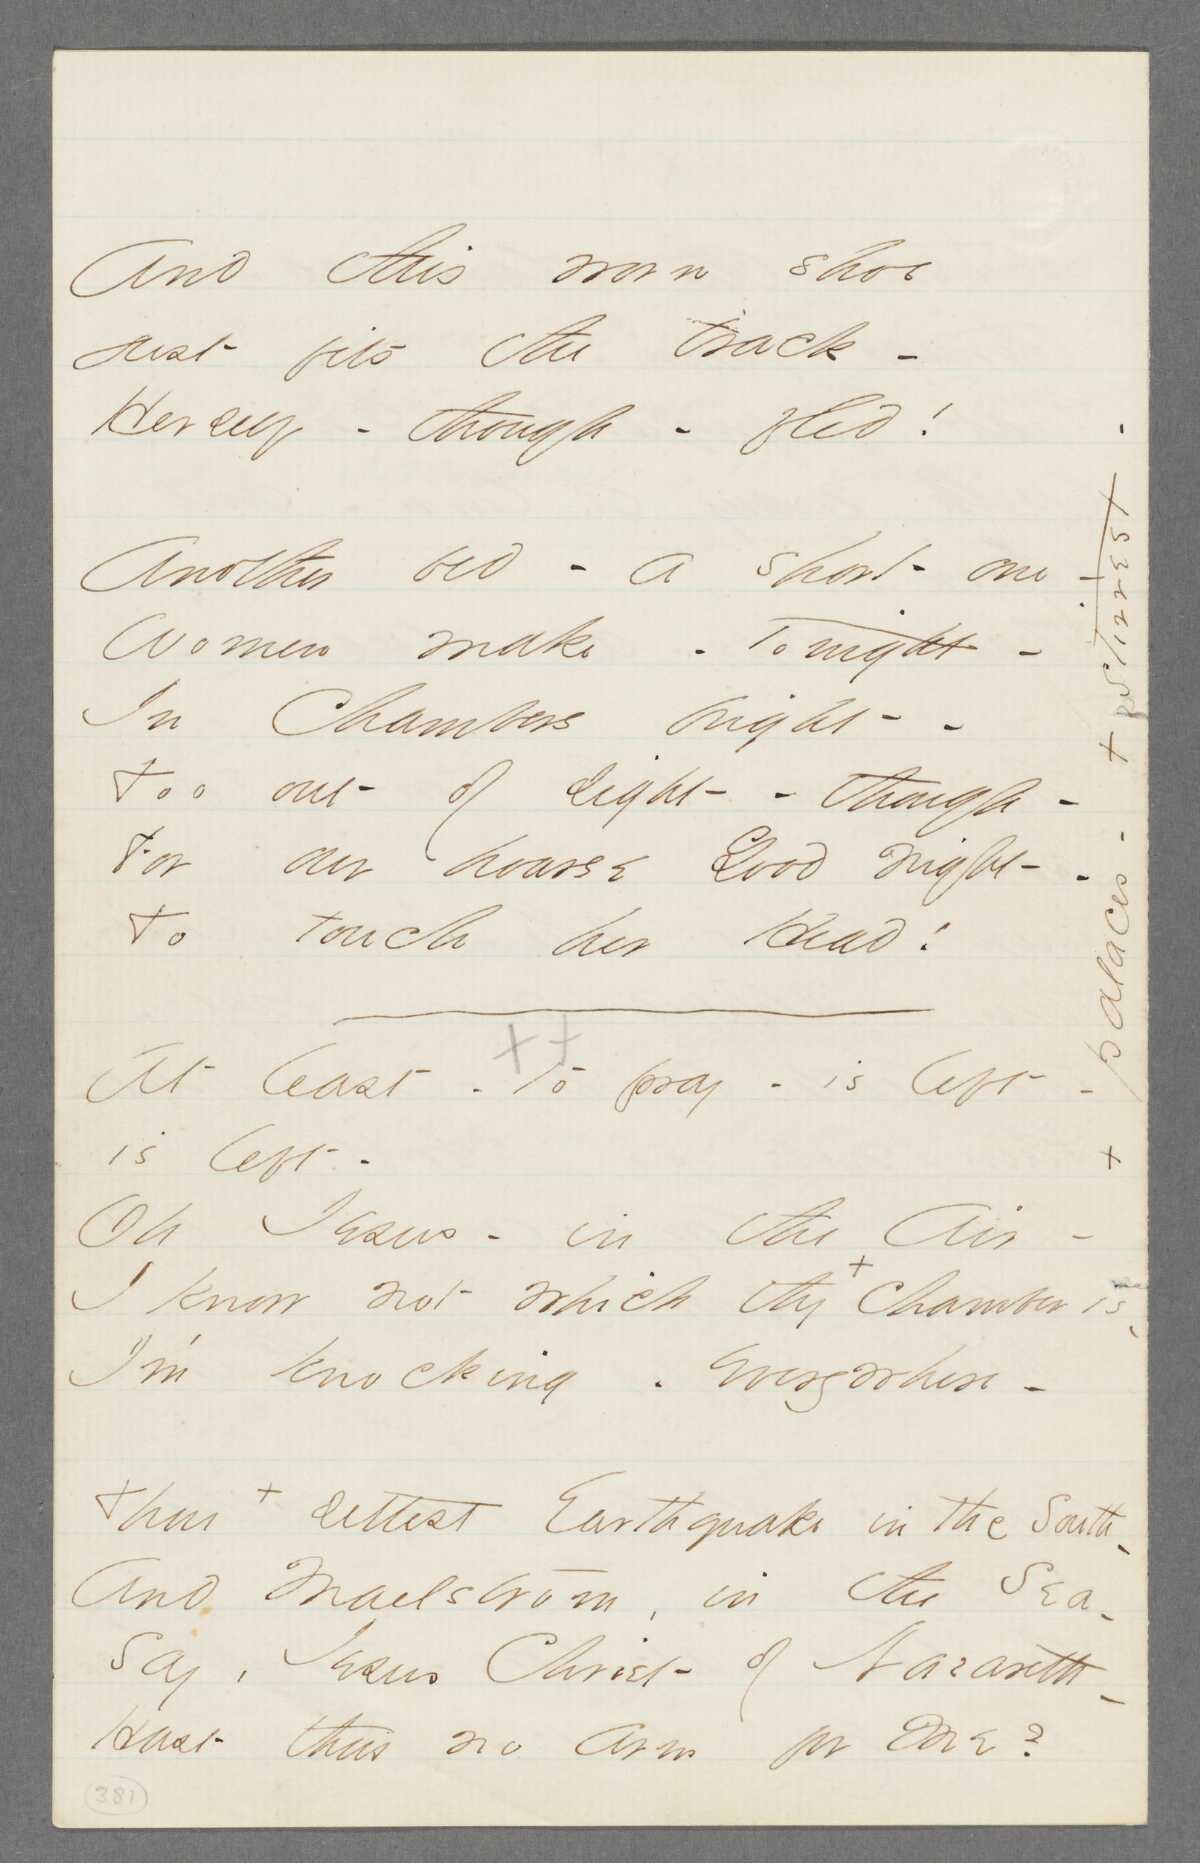 And this worn shoe
Just fits the track -
Herself - though - fled!
Another bed - a short one -
Women make - Tonight -
In Chambers bright -
Too out of sight - though -
For our hoarse Good Night -
To touch her Head!
++
At least - to pray - is left -
is left -
Oh Jesus - in the Air -
I know not which thy + chamber is -
I'm knocking - everywhere -
Thou + settest Earthquake in the South -
And Maelstrom, in the Sea -
Say, Jesus Christ of Nazareth -
Hast thou no arm for Me?
+ palaces - + stirrest -
381